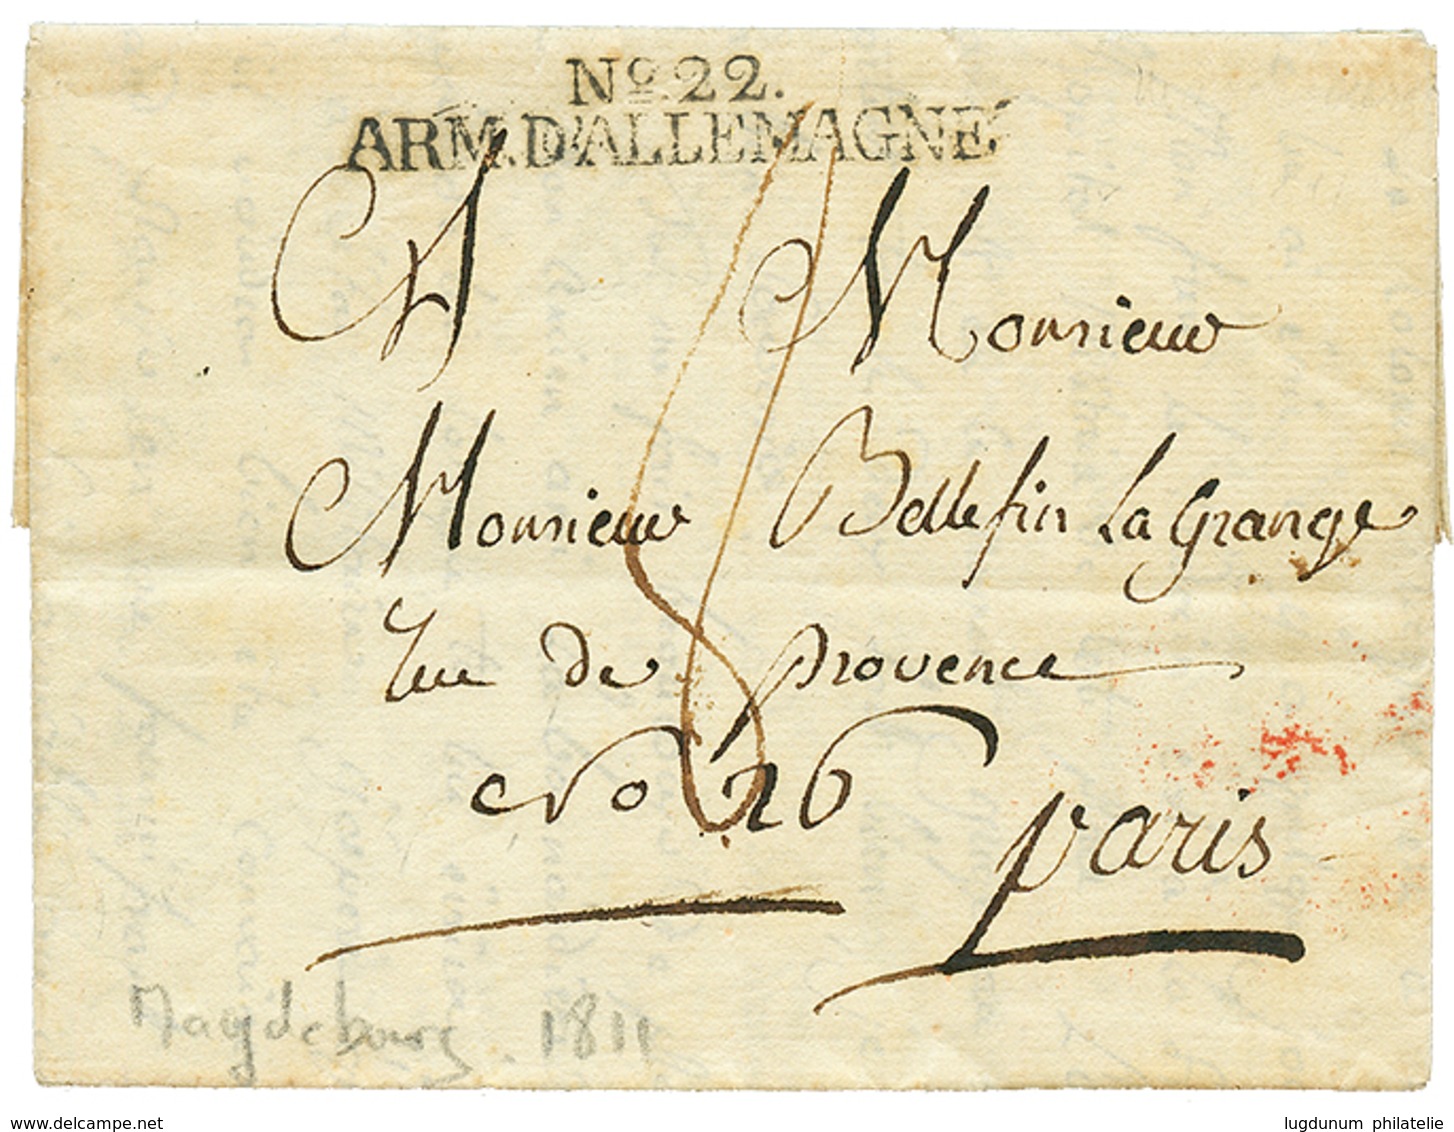 No. 22.
ARM. D'ALLEMAGNE.
A Monsieur
Monsieur Bellefin La Grange
rue de provence
No 26
paris
8
Magdebourg. 1811
www.delcampe.net
lugdunum philatelie